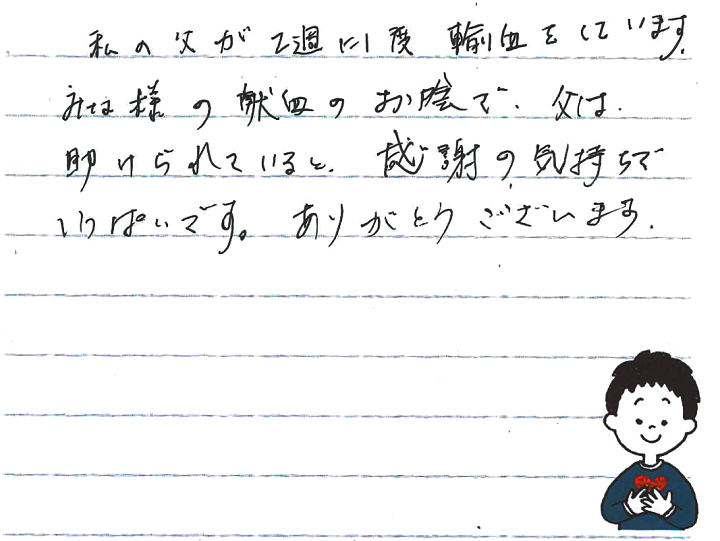 私の父が2週に1度輸血をしています。
みな様の献血のお陰で、父は、
助けられていると、感謝の気持ちで
いっぱいです。ありがとうございます。